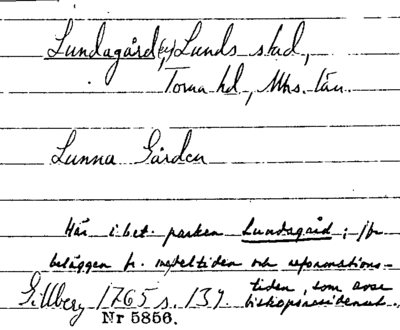 Lundagård(en), Lunds stad,
Torna hd, Mhs. län.
Lunna Gården
Här i bet. parken Lundagård; jfr
beläggen fr. medeltiden och reformations-
tiden, som avse
Gillberg 1765 s. 139. biskopsresidenset.
Nr 5856.